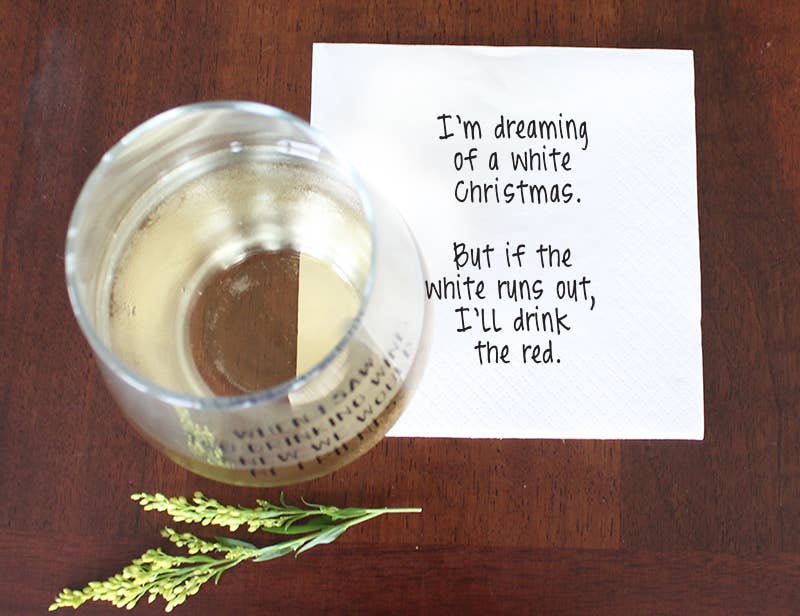 I'm dreaming
of a white
Christmas.
But if the
white runs out,
I'll drink
the red.
WHEN I SAW
DRINKING WINE
WE WOULD